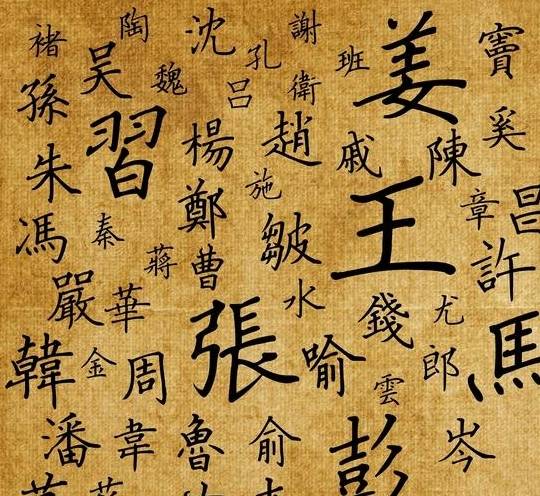 褚
陶
沈
謝
孔
班
姜
竇
吳
魏
孫
呂
衛
習
楊
趙
戚
陳
奚
朱
施
鄭
王
章
昌
馮
秦
皺
蔣
曹
許
嚴
華
水
錢
尤
張
馬
韓
金
周
喻
郎
雲
潘
韋
魯
俞
彭
岑